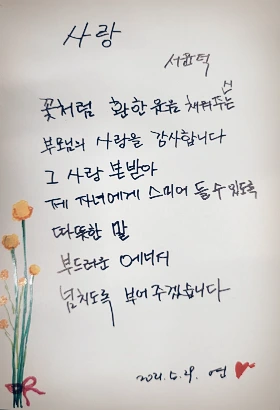 사랑
서관덕
꽃처럼 황한 문음 채워주신는
부모님의 사랑을 감사합니다
그 사랑 본받아
제 자녀에게 스미어 들 수 있도록
따뜻한 말
부드러운 에너지
넘치도록 부어 주겠습니다
2021. 5. 29. 연